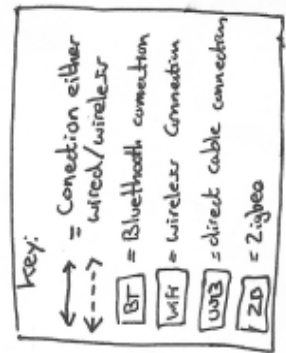 Key:
= Conection either
wired/wireless
BT = Bluethooth connection
Wifi = wireless Connection
= direct cable connection
ZB = Zigbee